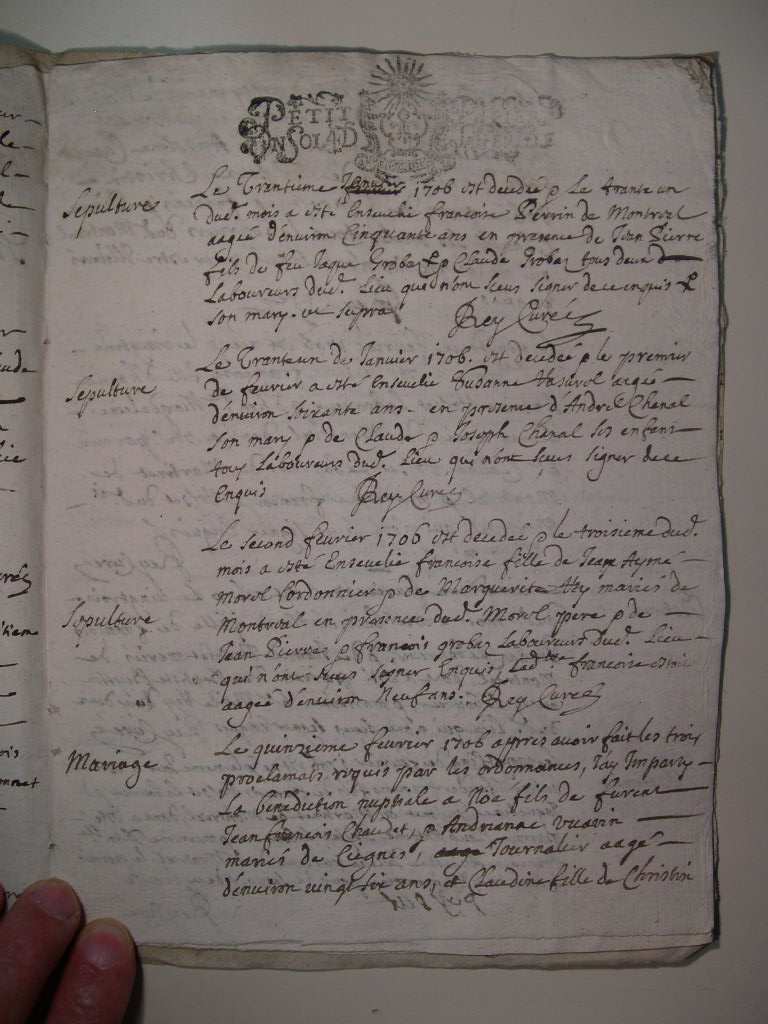 PETIT
UN SOL 4 D
Sepulture
Le Trantieme Janvier 1706 est decedée & Le trante un
dud. mois a esté Ensevelie francoise Perrin de Montreal
aagée d'environ Cinquante ans en presence de Jean Pierre
fils de feu Jaque Grobaz & Claude Grobaz tous deux
Laboureurs dud. Lieu que n'ont sceus signer de ce enquis &
son mary. ut supra Rey Curé
Sepulture
Le Tranteun de Janvier 1706. est decedée & le premier
de fevrier a esté Ensevelie Susanne aagée
d'environ soixante ans. en presence d'André Chanal
son mary & de Claude & Joseph Chanal ses enfans
tous Laboureurs dud. Lieu qui n'ont sceus signer de ce
Enquis Rey Curé
Sepulture
Le second fevrier 1706 est decedée & le troisieme dud.
mois a esté Ensevelie francoise fille de Jean Aymé
Morel Cordonnier & de Marguerite mariés de
Montreal en presence dud. Morel pere & de
Jean Pierre & francois grobaz Laboureurs dud. Lieu
qui n'ont sceus signer Enquis Lad. francoise estoit
aagée d'environ Neuf ans. Rey Curé
Mariage
Le quinzieme fevrier 1706 apres avoir fait les trois
proclamats requis par les ordonnances, J'ay Imparty
La benediction nuptiale a Noé fils de furent
Jean francois Chaudet, & Andrianne vuarin
mariés de Ciegnes, aagé Tournalier aagé
d'environ vingt six ans, et Claudine fille de Christin